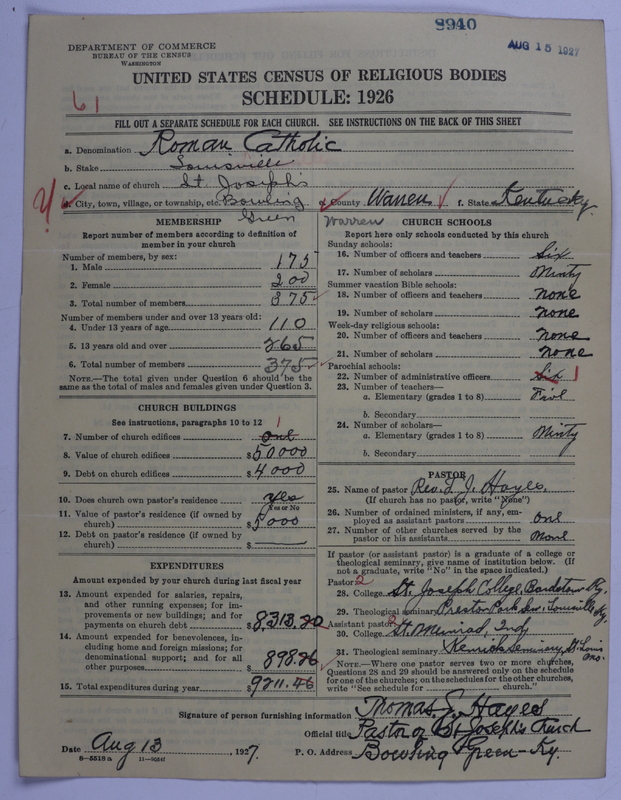 8940
AUG 15 1927
DEPARTMENT OF COMMERCE
BUREAU OF THE CENSUS
WASHINGTON
UNITED STATES CENSUS OF RELIGIOUS BODIES
SCHEDULE: 1926
61
FILL OUT A SEPARATE SCHEDULE FOR EACH CHURCH. SEE INSTRUCTIONS ON THE BACK OF THIS SHEET
a. Denomination Roman Catholic
b. Stake Louisville
c. Local name of church St. Joseph's
d. City, town, village, or township, etc. Bowling Green e. County Warren f. State Kentucky.
Warren
MEMBERSHIP
Report number of members according to definition of member in your church
Number of members, by sex:
1. Male 175
2. Female 200
3. Total number of members 375
Number of members under and over 13 years old:
4. Under 13 years of age 110
5. 13 years old and over 265
6. Total number of members 375
NOTE.—The total given under Question 6 should be the
same as the total of males and females given under Question 3.
CHURCH BUILDINGS
See instructions, paragraphs 10 to 12
7. Number of church edifices one 1
8. Value of church edifices $50000
9. Debt on church edifices $4000
10. Does church own pastor's residence yes
Yes or No
11. Value of pastor's residence (if owned by
church) $5000
12. Debt on pastor's residence (if owned by
church) $
EXPENDITURES
Amount expended by your church during last fiscal year
13. Amount expended for salaries, repairs,
and other running expenses; for im-
provements or new buildings; and for
payments on church debt $8313.20
14. Amount expended for benevolences, in-
cluding home and foreign missions; for
denominational support; and for all
other purposes 898.26
15. Total expenditures during year $9211.46
CHURCH SCHOOLS
Report here only schools conducted by this church
Sunday schools:
16. Number of officers and teachers Six
17. Number of scholars Ninty
Summer vacation Bible schools:
18. Number of officers and teachers none
19. Number of scholars none
Week-day religious schools:
20. Number of officers and teachers none
21. Number of scholars none
Parochial schools:
22. Number of administrative officers Six 1
23. Number of teachers—
a. Elementary (grades 1 to 8) Five
b. Secondary
24. Number of scholars—
a. Elementary (grades 1 to 8) Ninty
b. Secondary
PASTOR
25. Name of pastor Rev. T. J. Hayes.
(If church has no pastor, write "None")
26. Number of ordained ministers, if any, em-
ployed as assistant pastors one
27. Number of other churches served by the
pastor or his assistants None
If pastor (or assistant pastor) is a graduate of a college or
theological seminary, give name of institution below. (If
not a graduate, write "No" in the space indicated.)
Pastor: 2
28. College St. Joseph College, Bardstown Ky.
29. Theological seminary Preston Park Sem. Louisville Ky
Assistant pastor: 2
30. College St. Meinrad, Ind
31. Theological seminary Kenrick Seminary St. Louis Mo.
NOTE.—Where one pastor serves two or more churches,
Questions 28 and 29 should be answered only on the schedule
for one of the churches; on the schedules for the other churches,
write "See schedule for church."
Signature of person furnishing information Thomas J. Hayes
Official title Pastor of St Joseph's Church
Date Aug 13, 1927. P. O. Address Bowling Green - Ky.
8—5518 a 11—90247